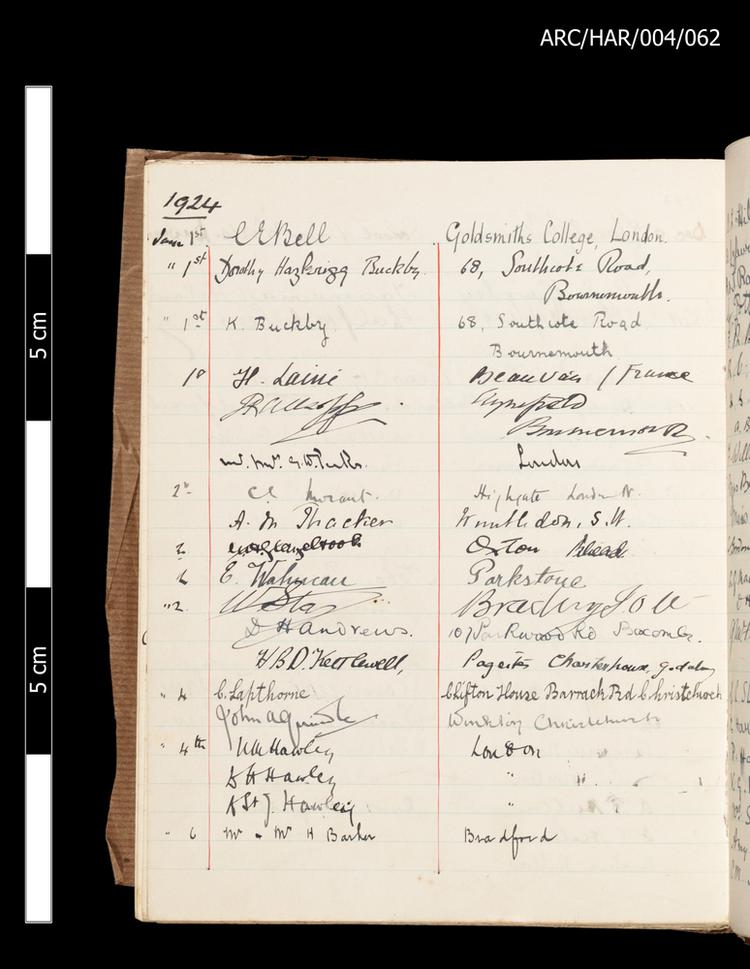 ARC/HAR/004/062
5 cm
5 cm
1924
Jan 1st C E Bell Goldsmiths College, London.
" 1st Dorothy Hazlerigg Buckby. 68, Southcote Road,
Bournemouth.
" 1st K. Buckby 68, Southcote Road
Bournemouth
1st H. Lainé Beauvais / France
Bournemouth.
London
2 Morant. Highgate London N.
A. M Thacker Wimbledon, S.W.
2 Oxton
2 E. Parkstone
" 2
D H Andrews. 107 Parkwood Rd Boscombe.
H.B.D. Kettlewell, Pageites Charterhouse, Godalming
" 4 C. Lapthorne Clifton House Barrack Rd Christchurch
John A Christchurch
" 4th Hawley London
D H Hawley " "
A St J. Hawley "
" 6 Mr & Mrs H Barker Bradford